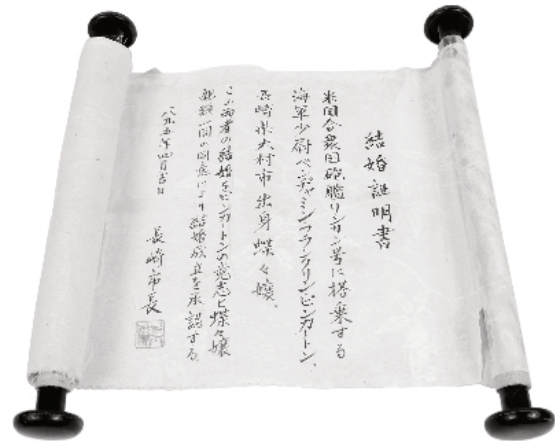 結婚証明書
米国合衆国砲艦リンカン号に搭乗する
海軍少尉ベンジャミンフランクリンピンカートン、
長崎県大村市出身蝶々嬢、
この両者の結婚をピンカートンの意志と蝶々嬢
親類一同の同意により結婚成立を承認する。
八九五年四月吉日
長崎市長